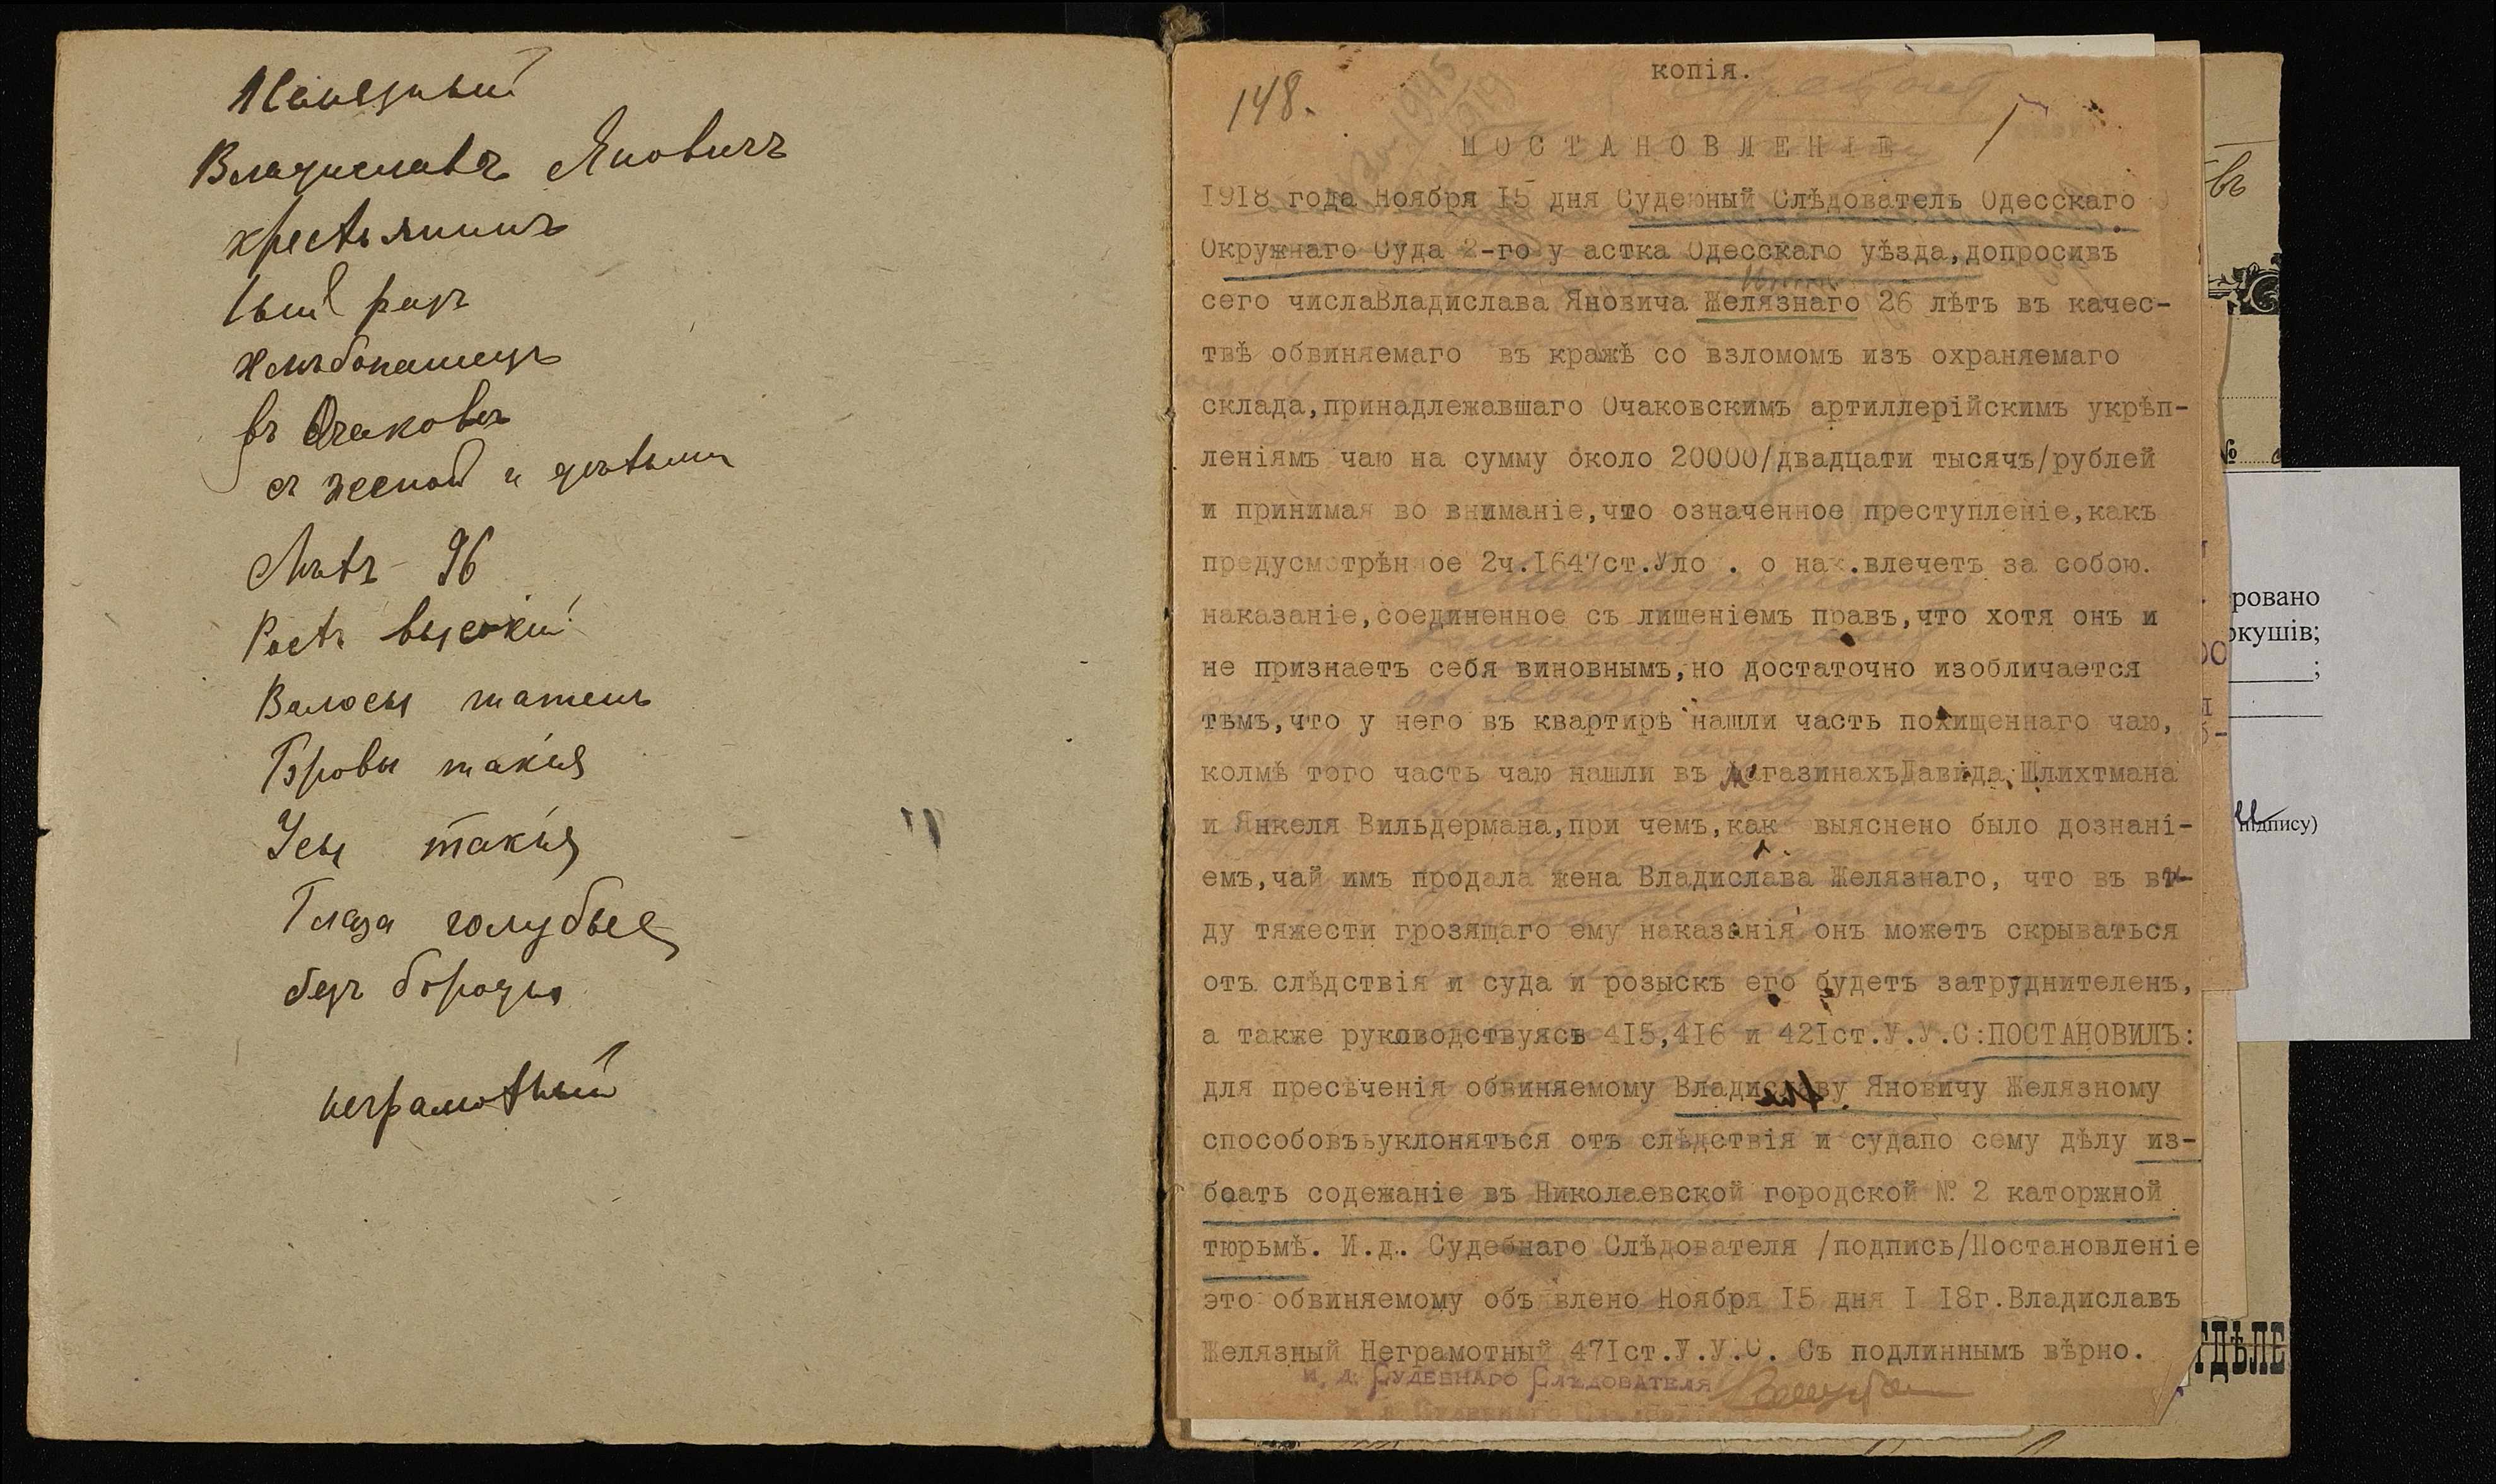 Владиславъ Яновичъ
крестьянинъ
1ый разъ
хлѣбопашецъ
въ Очаковѣ
съ женой и дѣтьми
Лѣтъ 26
Ростъ высокій
Волосы шатенъ
Брови такія
Усы такія
Глаза голубые
безъ бороды
неграмотный
148.
копія.
1
ПОСТАНОВЛЕНІЕ
1918 года Ноября 15 дня Судебный Слѣдователь Одесскаго
Окружнаго Суда 2-го у астка Одесскаго уѣзда,допросивъ
сего числаВладислава Яновича Желязнаго 26 лѣтъ въ качес-
твѣ обвиняемаго въ кражѣ со взломомъ изъ охраняемаго
склада,принадлежавшаго Очаковскимъ артиллерійскимъ укрѣп-
леніямъ чаю на сумму около 20000/двадцати тысячъ/рублей
и принимая во вниманіе,что означенное преступленіе,какъ
предусмотрѣнное 2ч.1647ст.Уло . о нак.влечетъ за собою.
наказаніе,соединенное съ лишеніемъ правъ,что хотя онъ и
не признаетъ себя виновнымъ,но достаточно изобличается
тѣмъ,что у него въ квартирѣ нашли часть похищеннаго чаю,
колмѣ того часть чаю нашли въ магазинахъДавида Шлихтмана
и Янкеля Вильдермана,при чемъ,как выяснено было дознані-
емъ,чай имъ продала жена Владислава Желязнаго, что въ ви-
ду тяжести грозящаго ему наказанія онъ можетъ скрываться
отъ слѣдствія и суда и розыскъ его будетъ затруднителенъ,
а также руководствуясь 415,416 и 421ст.У.У.С:ПОСТАНОВИЛЪ:
для пресѣченія обвиняемому Владиславу Яновичу Желязному
способовъьуклоняться отъ слѣдствія и судапо сему дѣлу из-
боать содежаніе въ Николаевской городской № 2 каторжной
тюрьмѣ. И.д. Судебнаго Слѣдователя /подпись/Постановленіе
это обвиняемому объявлено Ноября 15 дня 1 18г.Владиславъ
Желязный Неграмотный 471ст.У.У.С. Съ подлиннымъ вѣрно.
И. д. Судебнаго Слѣдователя
въ
№
ровано
ркушів;
підпису)
ТДѢЛЕ